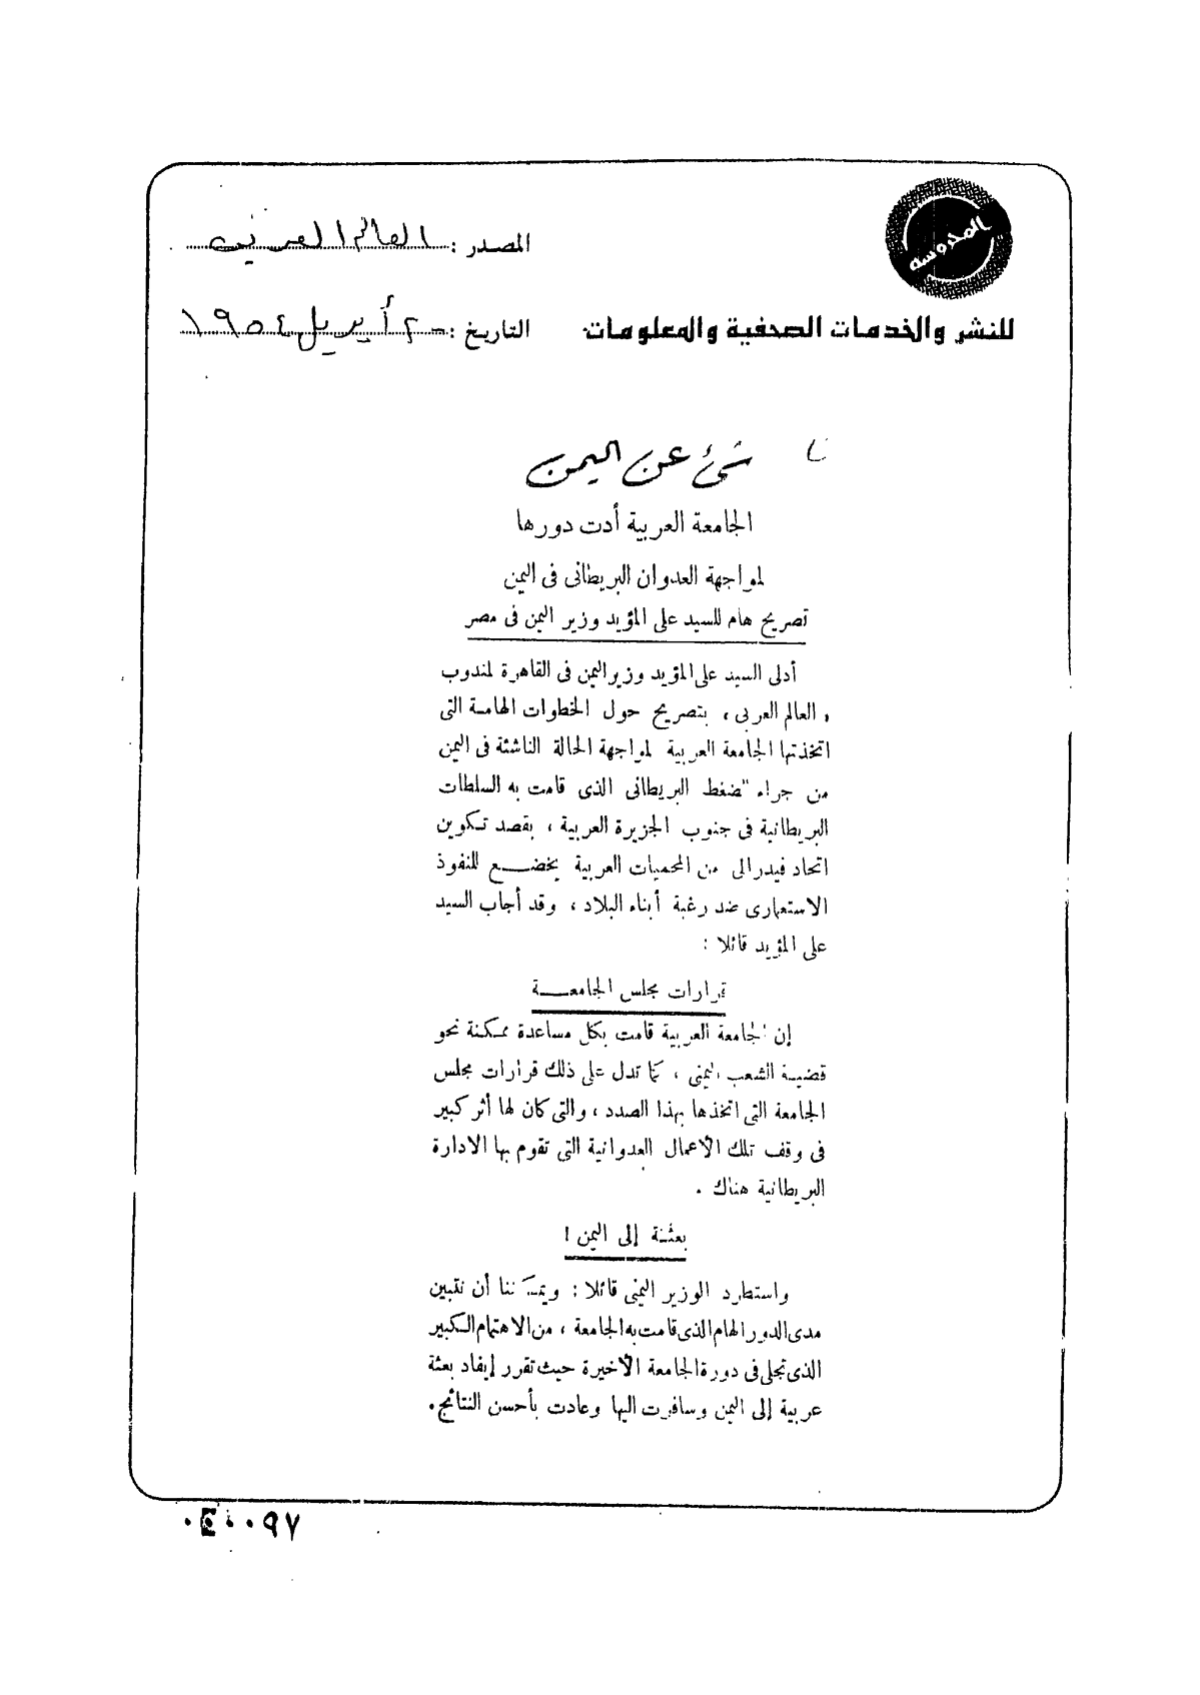 المحروسة
المصدر : العالم العربى
للنشر والخدمات الصحفية والمعلومات
التاريخ : ٢٠ أبريل ١٩٥٤
شئ عن اليمن
الجامعة العربية أدت دورها
لمواجهة العدوان البريطانى فى اليمن
تصريح هام للسيد على المؤيد وزير اليمن فى مصر
أدلى السيد على المؤيد وزير اليمن فى القاهرة لمندوب
« العالم العربى » بتصريح حول الخطوات الهامة التى
اتخذتها الجامعة العربية لمواجهة الحالة الناشئة فى اليمن
من جراء الضغط البريطانى الذى قامت به السلطات
البريطانية فى جنوب الجزيرة العربية ، بقصد تكوين
اتحاد فيدرالى من المحميات العربية يخضـــع للنفوذ
الاستعمارى ضد رغبة أبناء البلاد ، وقد أجاب السيد
على المؤيد قائلا :
قرارات مجلس الجامعـــة
إن الجامعة العربية قامت بكل مساعدة ممكنة نحو
قضية الشعب اليمنى ، كما تدل على ذلك قرارات مجلس
الجامعة التى اتخذها بهذا الصدد ، والتى كان لها أثر كبير
فى وقف تلك الأعمال العدوانية التى تقوم بها الادارة
البريطانية هناك .
بعثة إلى اليمن !
واستطرد الوزير اليمنى قائلا : ويمكننا أن نتبين
مدى الدور الهام الذى قامت به الجامعة ، من الاهتمام الكبير
الذى تجلى فى دورة الجامعة الأخيرة حيث تقرر إيفاد بعثة
عربية إلى اليمن وسافرت اليها وعادت بأحسن النتائج .